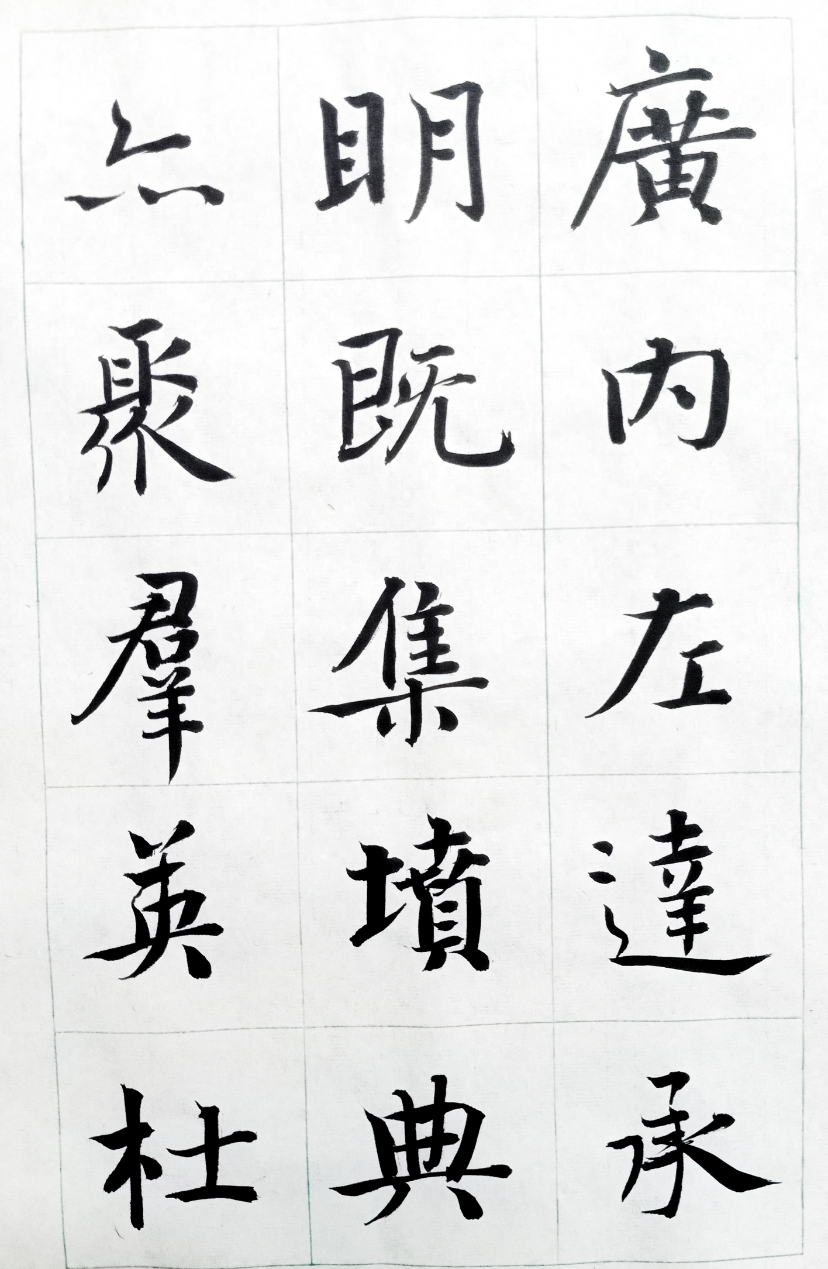 廣内左達承
明既集墳典
亦聚羣英杜